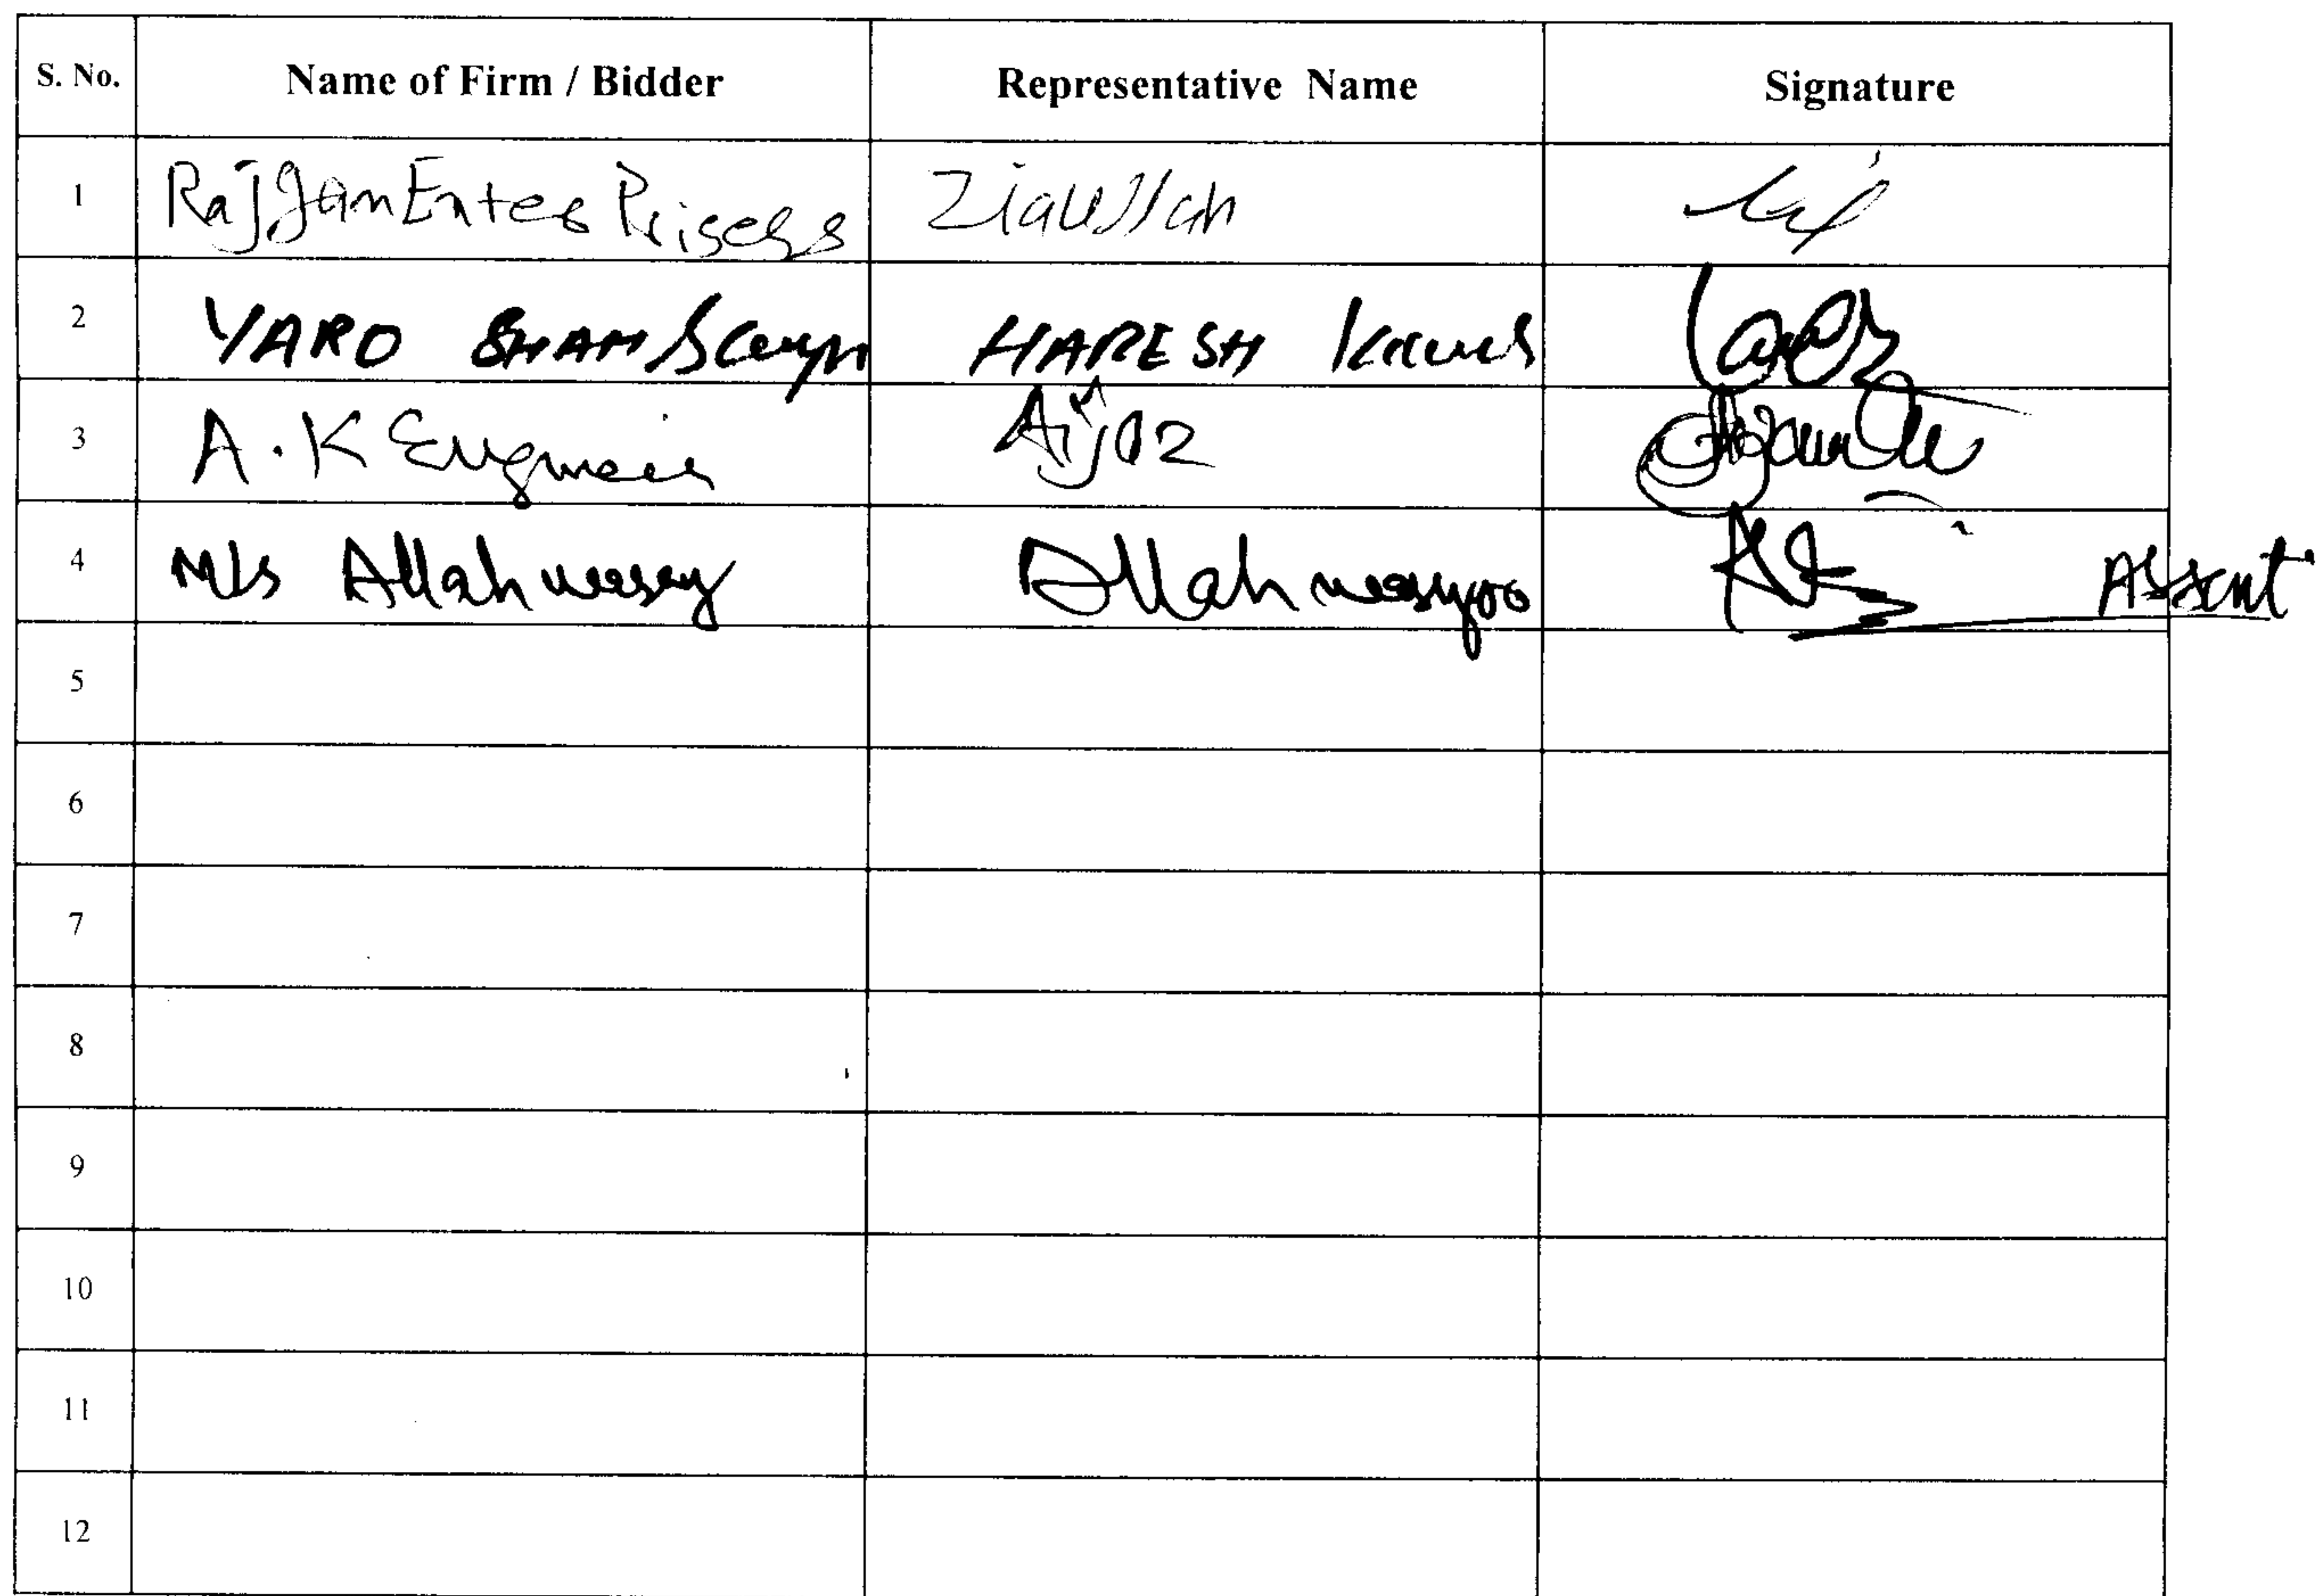 S. No. Name of Firm / Bidder Representative Name Signature
1 RajJan EntesPrisess Ziaullah
2 YARO SHAM HARESH Kumar
3 A.K Engineers Aijaz
4 M/s Allah Allah Absent
5
6
7
8
9
10
11
12